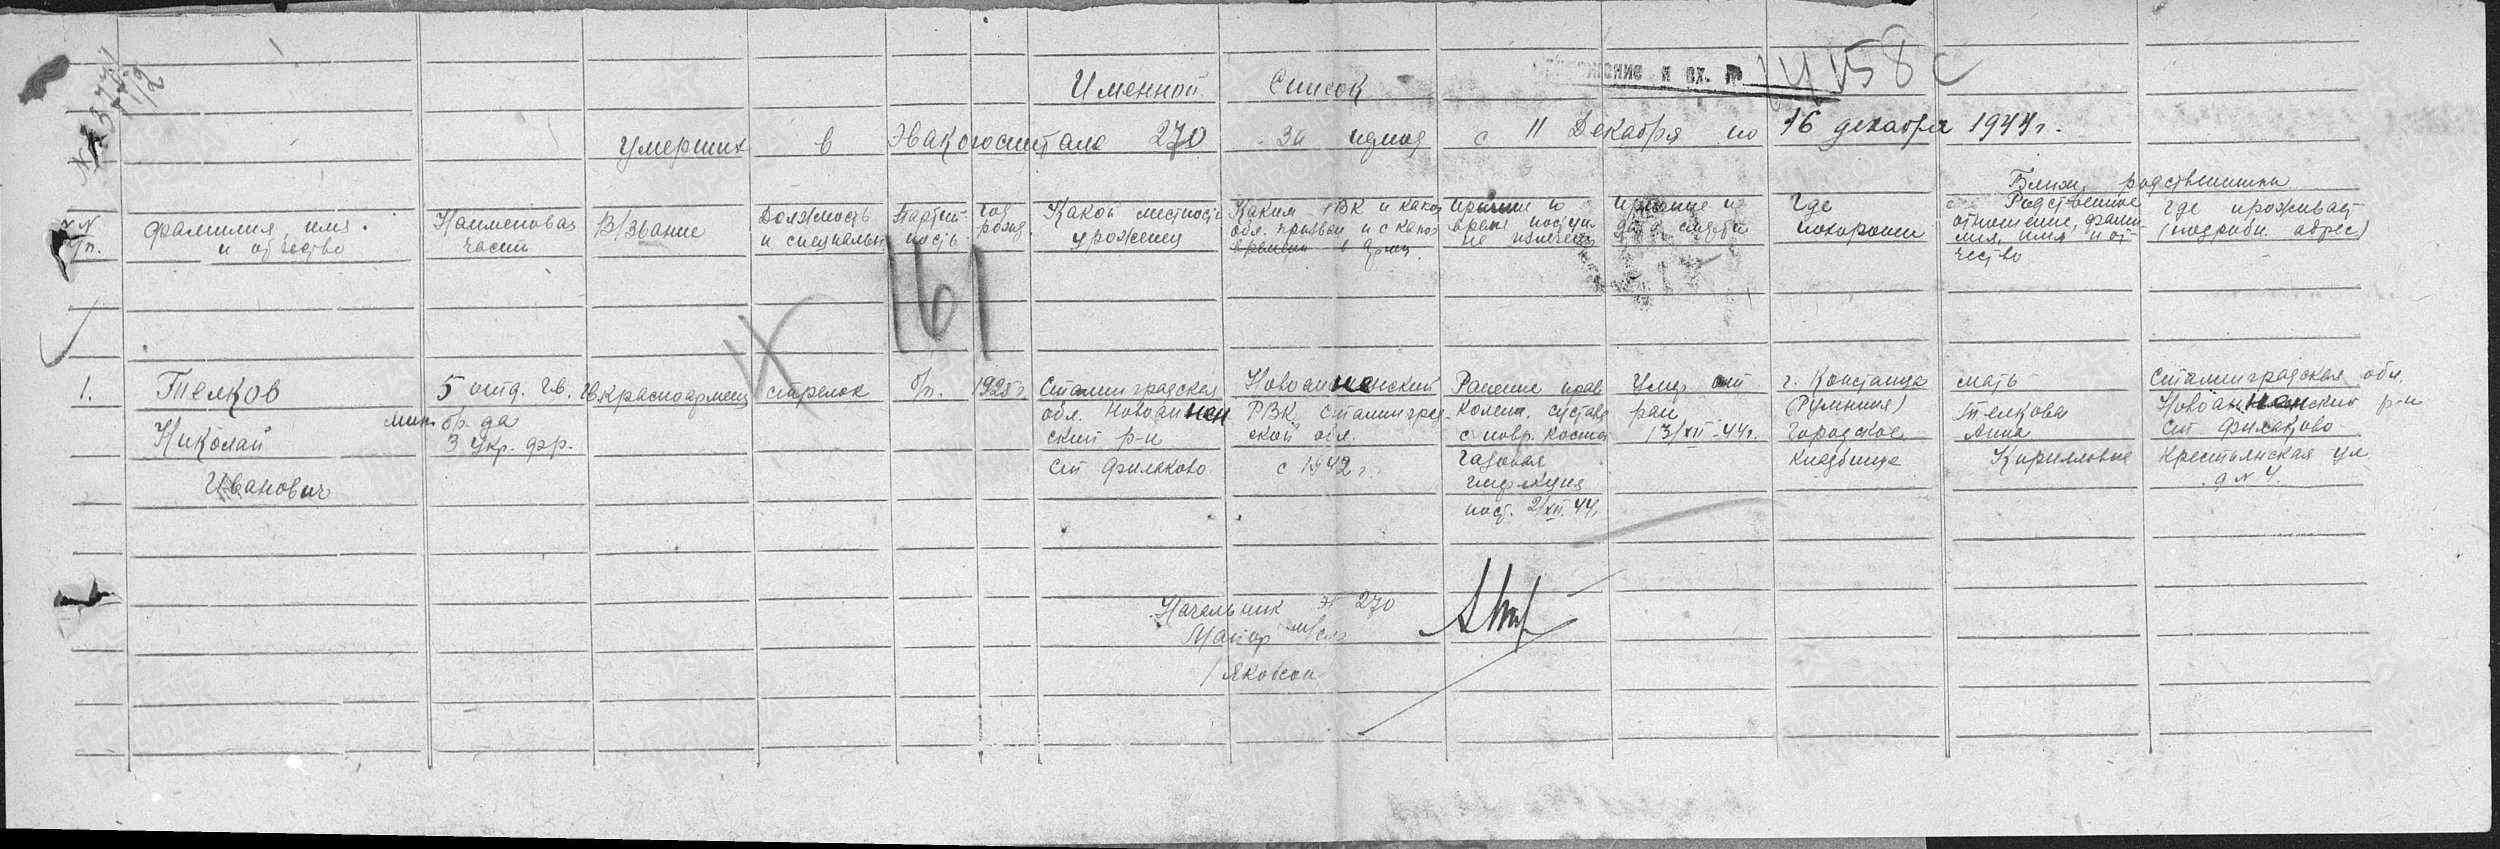 14158с
Именной Список
умерших в Эвакогоспитале 270 за период с 11 Декабря по 16 декабря 1944 г.
Ближ. родственники
№ п/п.
фамилия, имя и отчество
Наименован части
В/звание
Должность и специальн
Партий-ность
год рожд
Какой местности уроженец
Каким РВК и какой обл. призван и с какого времени в Армии
Причине и
Где похоронен
Родственное отношение, фамилия, имя и отчество
Где проживает (подробн. адрес)
161
1.
Телков
Николай
Иванович
5 отд. Гв.
мин. бр-да
3 Укр. фр.
Гв. красноармеец
стрелок
б/п.
1925 г
Сталинградская
обл. Новоаннен
ский р-н
ст Филоново
Новоанненский
РВК, Сталинград-
ской обл.
с 1942 г.
Ранение прав
колен. сустава
с повр. костей
газовая
гангрена
пост. 2/XII. 44 г.
Умер от
ран
13/XII-44г.
г. Констанца
(Румыния)
Городское
кладбище
мать
Телкова
Анна
Кирилловна
Сталинградская обл.
Новоанненский р-н
ст Филоново
Крестьянская ул
д № 4.
Начальник ЭГ 270
Майор м/сл
/Якобсон